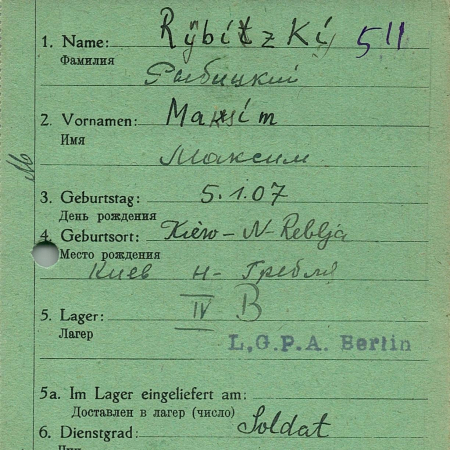 1. Name: Rybitzki 511
Фамилия
Рыбицкий
2. Vornamen: Maksim
Имя
Максим
3. Geburtstag: 5.1.07
День рождения
4. Geburtsort: Kiew-N-Reblja
Место рождения
Киев Н-Гребля
5. Lager: IV B
Лагер
L,G.P.A. Berlin
5a. Im Lager eingeliefert am:
Доставлен в лагер (число)
6. Dienstgrad: Soldat